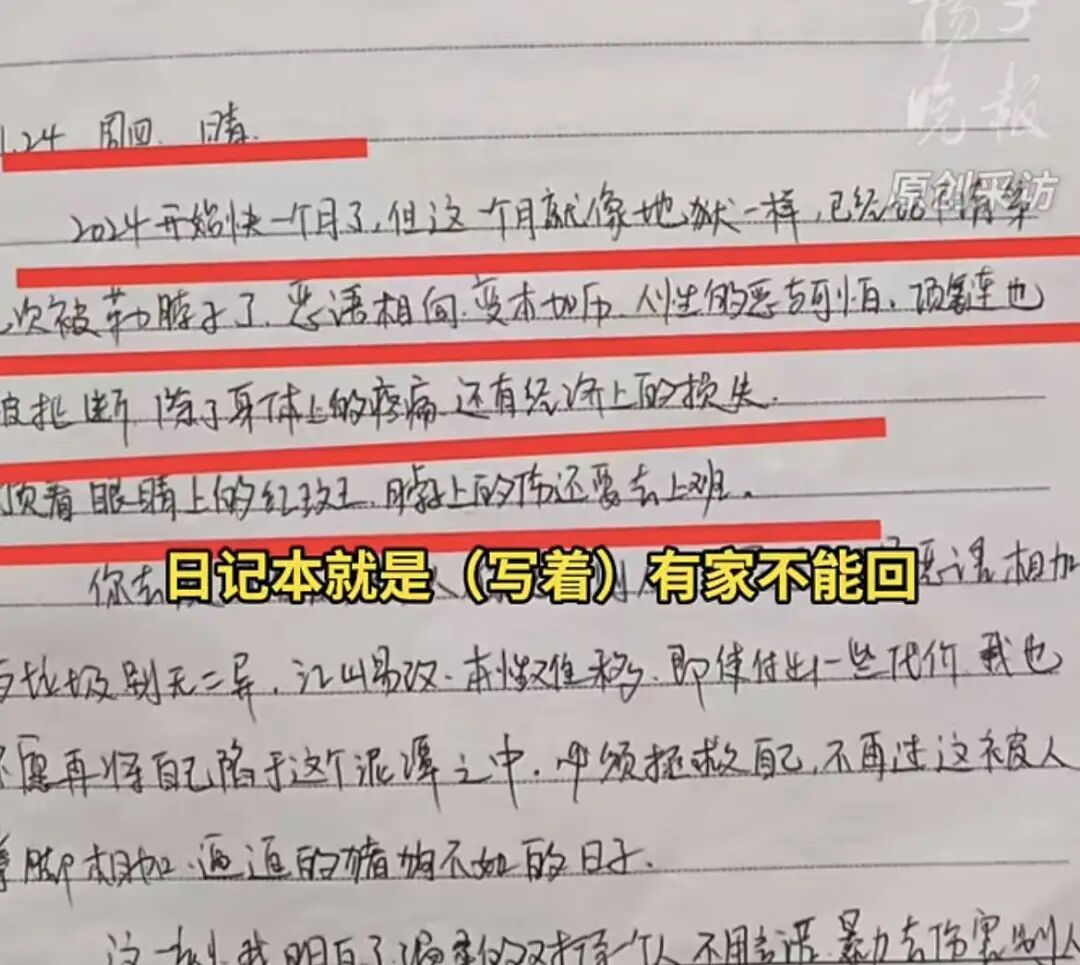 扬子
晚报
原创采访
1.24 周四. 晴.
2024开始快一个月了,但这一个月就像地狱一样,已经
次被勒脖子了.恶语相向.变本加厉.人性的恶与可怕.项链也
被扯断 除了身体上的疼痛 还有经济上的损失.
顶着眼睛上的红斑.脖子上的伤还要去上班.
日记本就是（写着）有家不能回
你 恶语相加
与垃圾别无二异.江山易改.本性难移.即使付出一些代价 我也
不愿再将自己陷于这个泥潭之中.必须拯救自己,不再过这被人
拳脚相加.逼逼的猪狗不如的日子.
这一刻我明白了 对待一个人 不用言语.暴力去伤害别人